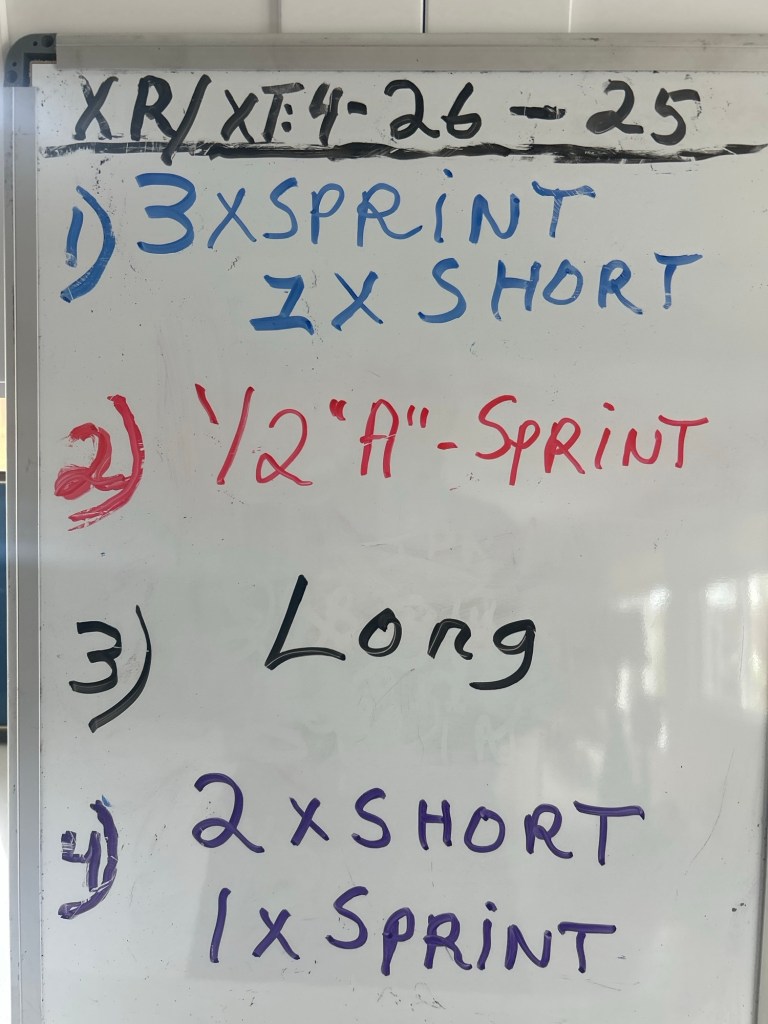 XR/XT: 4-26-25
1) 3XSPRINT
1X SHORT
2) 1/2 "A"-SPRINT
3) Long
4) 2 X SHORT
1 X SPRINT